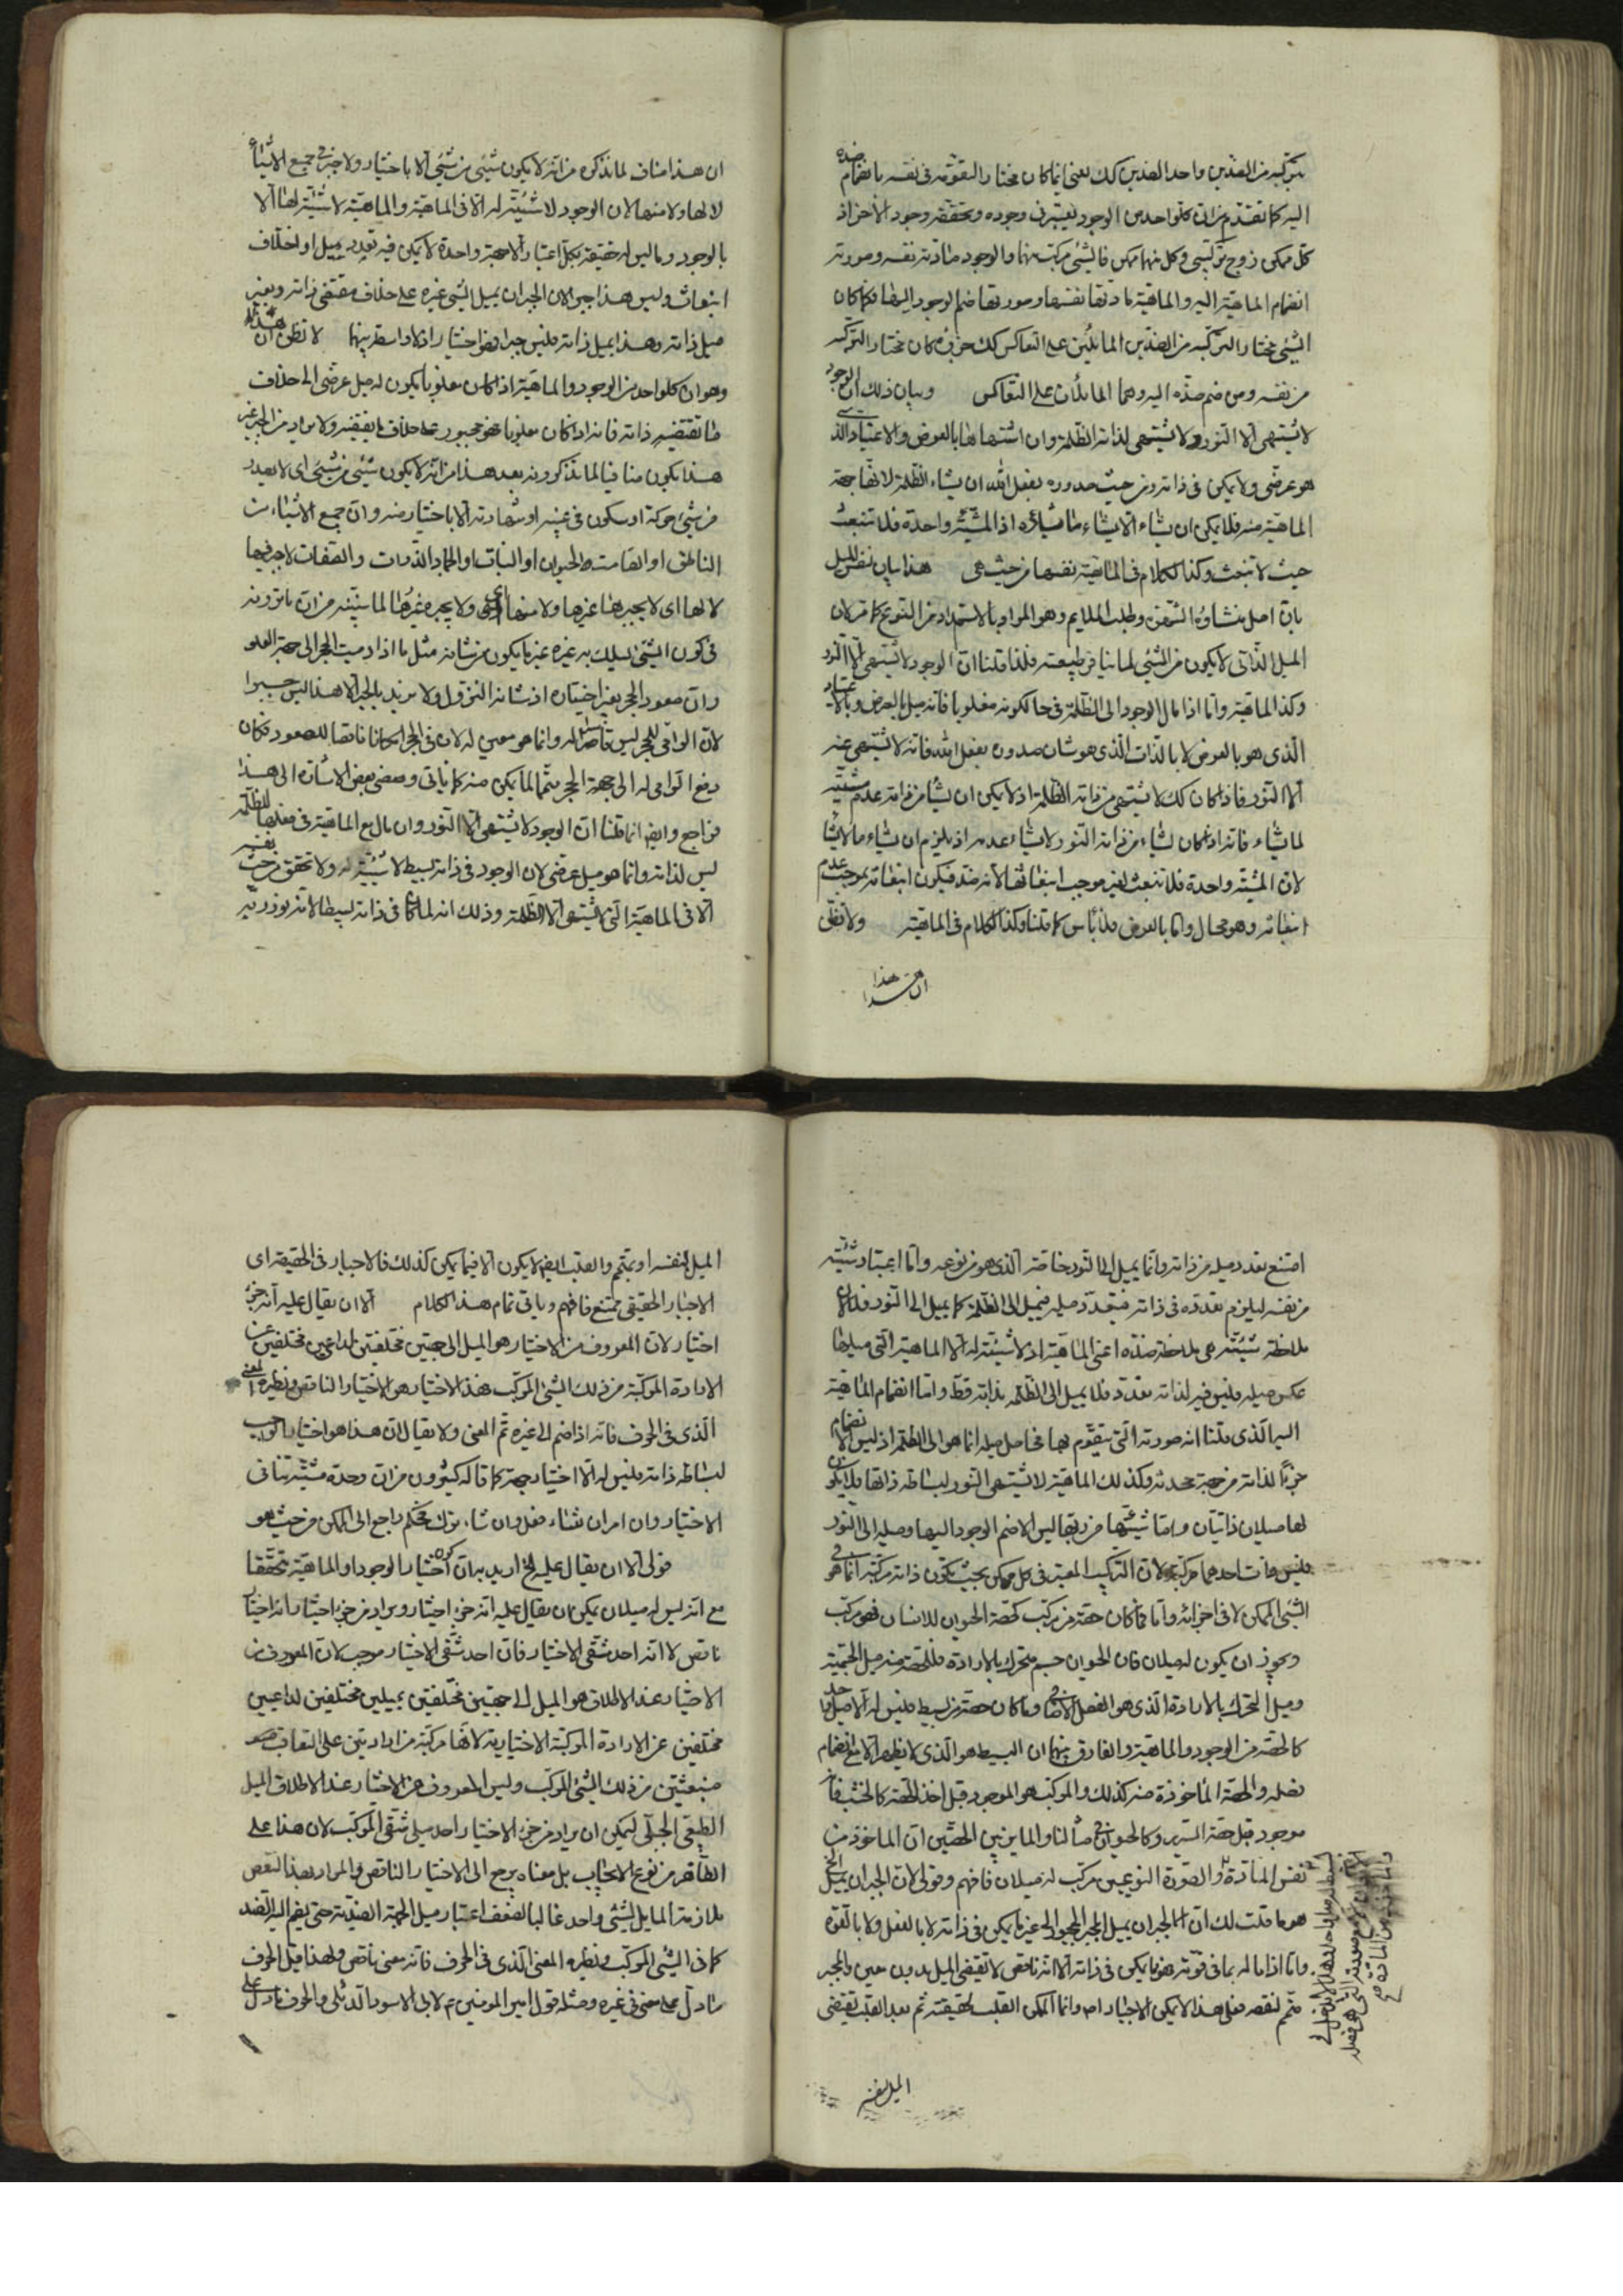 يتركب من الضدين واحد الضدين كك يعني انما كان مختارا لتقومه في نفسه بانضمام ضده
اليه كما تقدم من ان كلوا حد من الوجود يعتبر في وجوده وتحققه وجود الآخر اذ
كل ممكن زوج تركيبي وكل منهما ممكن فالشيء مركب منهما والوجود مادته نفسه وصورته
انضمام الماهية اليه والماهية مادتها نفسها وصورتها ضم الوجود اليها فكما كان
الشيء مختارا لتركبه من الضدين المائلين على التعاكس كك جزئه كان مختارا لتركبه
من نفسه ومن ضم ضده اليه وهما المائلان على التعاكس وبيان ذلك ان الوجود
لا يشتهي الا النور ولا يشتهي لذاته الظلمة وان اشتهاها بالعرض والاعتبار الذي
هو عرضي ولا يمكن في ذاته ومن حيث صدوره بفعل الله ان يشاء الظلمة لانها جهة
الماهية منه فلا يمكن ان يشاء الا يشاء ما يشاؤه اذ المشية واحدة فلا تنبعث
حيث لا تنبعث وكذا الكلام في الماهية نفسها من حيث هي هذا بيان نفس الميل
بان اصل منشاؤه الشهوة وطلب الملايم وهو المراد بالاستمداد من النوع كما مر لان
الميل الذاتي لا يكون من الشيء لما ينافي طبيعته فلذا قلنا ان الوجود لا يشتهي الا النور
وكذا الماهية واما اذا مال الوجود الى الظلمة في حال كونه مغلوبا فانه ميل بالعرض وبالاعتبار
الذي هو بالعرض لا بالذات الذي هو شان صدوره بفعل الله فانه لا يشتهي عنه
الا النور فاذا كان كك لا يشتهي من ذاته الظلمة اذ لا يمكن ان يشاء من ذاته عدم مشيته
لما يشاء فانه اذا كان يشاء من ذاته النور لا يشاء عدمه اذ يلزم ان يشاء ما لا يشاء
لان المشية واحدة فلا تنبعث لغير موجب انبعاثها لانه ضده فيكون انبعاثه موجب عدم
انبعاثه وهو محال واما بالعرض فلا باس كما قلنا وكذا الكلام في الماهية ولا تظن
ان هذا
ان هذا مناف لما نذكره من انه لا يكون شيء من شيء الا باختيار ولا جبر في جميع الاشياء
لا لها ولا منها لان الوجود لا شيئية له الا في الماهية والماهية لا شيئية لها الا
بالوجود وما ليس له حقيقة بكل اعتبار الا جهة واحدة لا يمكن فيه تعدد ميل او اختلاف
انبعاث وليس هذا جبرا لان الجبر ان يميل الشيء غيره على خلاف مقتضى ذاته وبغير
ميل ذاته وهذا يميل ذاته فليس جبرا فهو اختيار اذ لا واسطة بينهما لا تظن ان هذا
وهو ان كلوا حد من الوجود والماهية اذا كان مغلوبا يكون له ميل عرضي الى خلاف
ما تقتضيه ذاته فانه اذا كان مغلوبا فهو مجبور على خلاف ما يقتضيه ولا يراد من الجبر غير
هذا يكون منافيا لما تذكرونه بعد هذا من انه لا يكون شيء من شيء اي لا يصدر
من شيء حركة او سكون في غيبه او شهادته الا باختيار منه وان جميع الاشياء من
الناطق او الصامت والحيوان او النبات والجماد الذوات والصفات لا جبر فيها
لا لها اي لا يجبرها غيرها ولا منها اي هي ولا يجبره غيرها لما سنبينه من ان ما ترونه
في كون الشيء يسلك به غيره غير ما يكون من شانه مثل ما اذا رميت الحجر الى جهة العلو
وان صعود الحجر بغير اختياره اذ شانه النزول ولا نريد بالجبر الا هذا ليس جبرا
لان الدافع للحجر ليس قاصرا له وانما هو معين له لان في الحجر امكانا ناقصا للصعود فكان
دفع الدافع له الى جهة الحجر متمما لما يمكن منه كما ياتي ومضى بعض الاشارة الى هذا
فراجع وايضا انما قلنا ان الوجود لا يشتهي الا النور وان مال مع الماهية في فعلها للظلمة
ليس لذاته وانما هو ميل عرضي لان الوجود في ذاته بسيط لا شيئية له ولا تحقق من حيث نفسه
الا في الماهية التي لا تشتهي الا الظلمة وذلك انه لما كان في ذاته بسيطا لانه نور ربه
امتنع تعدد ميله من ذاته وانما يميل الى النور خاصة الذي هو من نوعه واما اعتبار شيئيته
من نفسه ليلزم تعدده في ذاته فيتعدد ميله فيميل الى الظلمة كما يميل الى النور فلان
ملاحظة شيئيته هي ملاحظة ضده اعني الماهية اذ لا شيئية له الا الماهية التي ميلها
عكس ميله فليس فيه لذاته تعدد فلا يميل الى الظلمة بذاته قط واما انضمام الماهية
اليه الذي قلنا انه صورته التي يتقوم بها فحاصل ميله انما هو الى الظلمة اذ ليس الانضمام
جزءا لذاته من جهة محدثه وكذلك الماهية لا تشتهي النور لبساطة ذاتها فلا يكون
لها ميلان ذاتيان واما شيئيتها من ربها ليس الا ضم الوجود اليها وميله الى النور
فليس ذات احدهما مركبة لان التركيب المعتبر في كل ممكن بحيث يكون ذاته مركبة انما هو في
الشيء الممكن لا في اجزائه واما ما كان حصة من مركب كحصة الحيوان للانسان فهو مركب
ويجوز ان يكون له ميلان فان الحيوان جسم متحرك بالارادة فللحصة منه ميل الجسمية
وميل التحرك بالارادة الذي هو الفصل وما كان حصة من بسيط فليس له الا ميل واحد
كالحصة من الوجود والماهية والفارق بينهما ان البسيط هو الذي لا يظهر الا مع انضمام
فصله والحصة الماخوذة منه كذلك والمركب هو الموجود قبل اخذ الحصة كالخشب فانه
موجود قبل حصة السرير وكالحيوان في مثالنا والمايز بين الحصتين ان الماخوذ من
نفس المادة والصورة النوعيين مركب له ميلان فافهم وقولي لان الجبر ان يميل الخ
هو ما قلت لك ان الجبر ان يميل الجبر المجبر الى غير ما يمكن في ذاته لا بالفعل ولا بالقوة
واما اذا ما له بما في قوته فهو ما يمكن في ذاته الا انه ناقص لا تقتضي الميل بدون معين والمجبر
متمم لنقصه فعلى هذا لا يمكن الاجبار اصلا وانما امكن القلب لحقيقته ثم بعد القلب تقتضي
الميل لنفسه
الميل لنفسه او يتمم والقلب ايضا لا يكون الا فيما يمكن كذلك فالاجبار في الحقيقة اي
الاجبار الحقيقي ممتنع فافهم وياتي تمام هذا الكلام الا ان يقال عليه انه جزء
اختيار لان المعروف من الاختيار هو الميل الى جهتين مختلفتين لداعيين مختلفين عن
الارادة المركبة من ذلك الشيء المركب فهذا الاختيار هو الاختيار الناقص ونظيره المعنى
الذي في الحرف فانه اذا ضم الى غيره تم المعنى ولا يقال ان هذا هو اختيار الواجب
لبساطة ذاته فليس له الا اختيار جهة كما قاله كثيرون من ان وحدة مشيته تنافي
الاختيار وان امر ان شاء فعل وان شاء ترك فحكم راجع الى الممكن من حيث هو
قولي الا ان يقال عليه الخ اريد به بيان اختيار الوجود او الماهية تحققا
مع انه ليس له ميلان يمكن ان يقال عليه انه جزء اختيار ويراد من جزء اختيار انه اختيار
ناقص لا انه احد شقي الاختيار فان احد شقي الاختيار موجب لان المعروف من
الاختيار عند الاطلاق هو الميل الى جهتين مختلفتين بميلين مختلفين لداعيين
مختلفين عن الارادة المركبة الاختيارية لانها مركبة من ارادتين على التعاقب
منبعثتين من ذلك الشيء المركب وليس المعروف من الاختيار عند الاطلاق الميل
الطبيعي الجبلي ليمكن ان يراد من جزء الاختيار احد ميلي شقي المركب لان هذا على
الظاهر من نوع الايجاب بل معناه يرجع الى الاختيار الناقص والمراد بهذا النقص
ملازمة المايل لشيء واحد غالبا لضعف اعتبار ميل الجهة الضدية حتى يضم اليه الضد
كما في الشيء المركب ونظيره المعنى الذي في الحرف فانه معنى ناقص ولهذا قيل الحرف
ما دل على معنى في غيره ومثله قول امير المومنين ع لابي الاسود الدئلي والحرف ما دل على